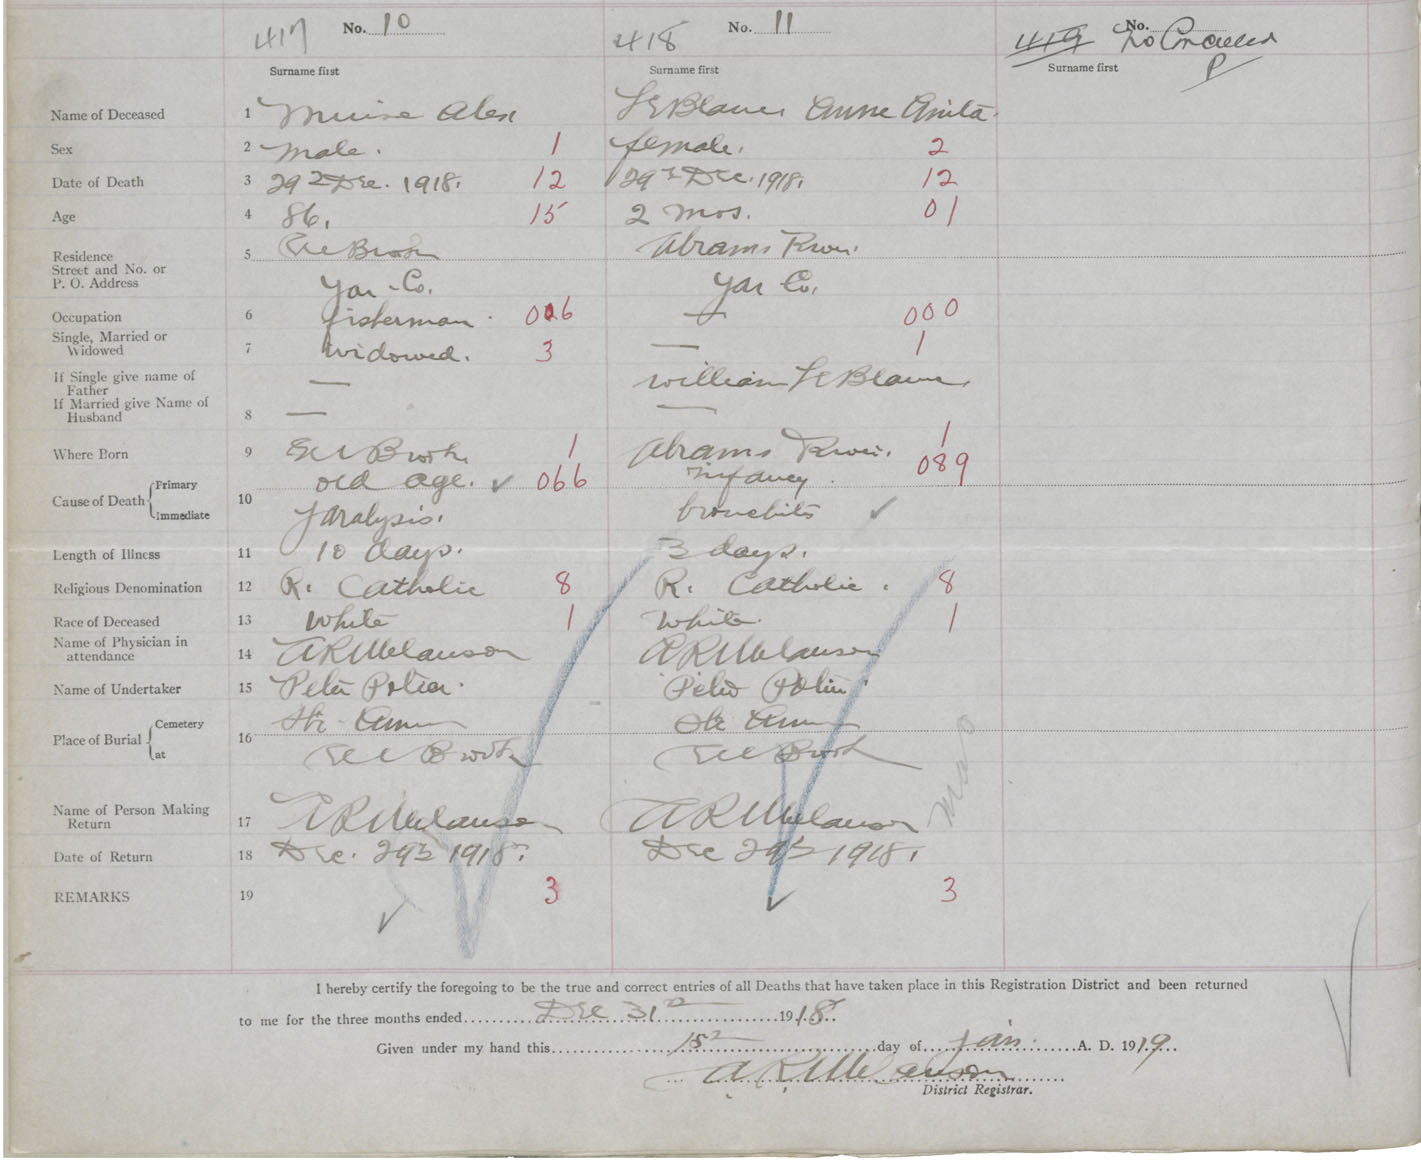 417 No. 10 418 No. 11 419 No. No Cancelled
P
Surname first Surname first Surname first
Name of Deceased 1 Muise Alex LeBlanc Anne Anita
Sex 2 male. 1 female. 2
Date of Death 3 29 Dec. 1918. 12 29 Dec. 1918. 12
Age 4 86. 15 2 mos. 01
Residence 5 Eel Brook Abrams River
Street and No. or
P. O. Address Yar Co. Yar Co.
Occupation 6 fisherman. 006 — 000
Single, Married or
Widowed 7 Widowed. 3 — 1
If Single give name of
Father — William LeBlanc
If Married give Name of
Husband 8 — —
Where Born 9 Eel Brook 1 Abrams River. 1
Cause of Death Primary old age. ✓ 066 infancy. 089
10
Immediate paralysis. bronchitis ✓
Length of Illness 11 10 days. 3 days.
Religious Denomination 12 R. Catholic 8 R. Catholic. 8
Race of Deceased 13 White 1 White. 1
Name of Physician in
attendance 14 A R Melanson A R Melanson
Name of Undertaker 15 Peter Peter
Place of Burial Cemetery Ste Ann Ste Ann
16
at Eel Brook Eel Brook
Name of Person Making
Return 17 A R Melanson A R Melanson
Date of Return 18 Dec. 29th 1918. Dec 29th 1918.
REMARKS 19 3 3
I hereby certify the foregoing to be the true and correct entries of all Deaths that have taken place in this Registration District and been returned
to me for the three months ended Dec 31 1918.
Given under my hand this 15 day of Jan. A. D. 1919
A R Melanson
District Registrar.